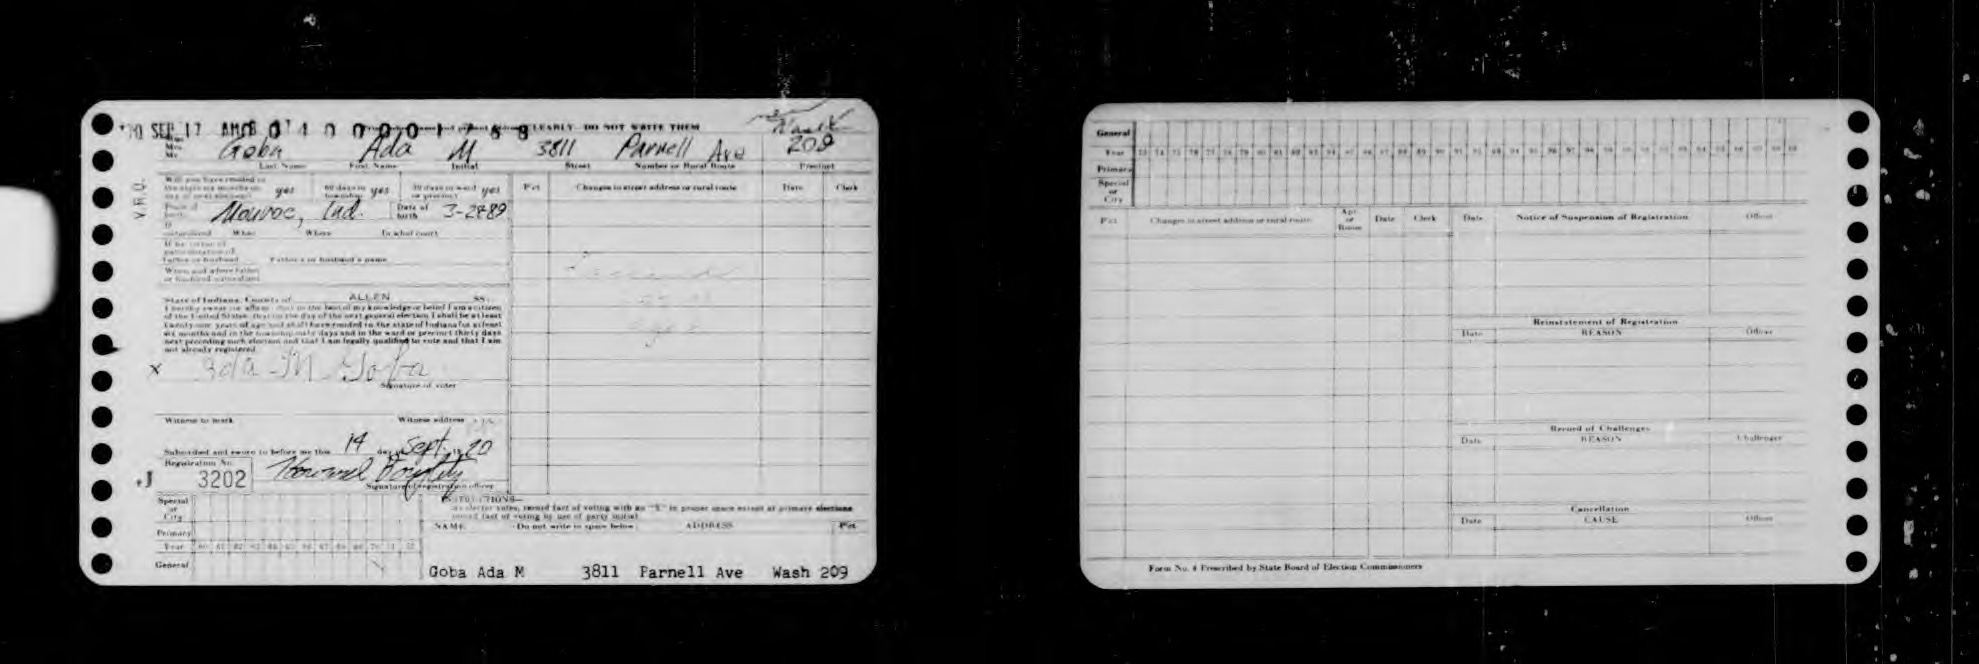 '70 SEP 17 AM 8 CLEARLY DO NOT WRITE THEM
Wash
Mrs Goba Ada M 3811 Parnell Ave 209
Last Name First Name Initial Street Number or Rural Route Precinct
V.R.U.
yes 60 days in township yes 30 days in ward or precinct yes
Pct Changes in street address or rural route Date Clerk
Place of birth Monroe, Ind. Date of birth 3-28-89
If naturalized When Where In what court
Father or husband Father's or husband's name
When and where father or husband naturalized
State of Indiana, County of ALLEN ss:
I hereby swear (or affirm) that to the best of my knowledge or belief I am a citizen
of the United States, that on the day of the next general election I shall be at least
twenty-one years of age and shall have resided in the state of Indiana for at least
six months and in the township sixty days and in the ward or precinct thirty days
next preceding such election and that I am legally qualified to vote and that I am
not already registered.
X Ada M Goba
Signature of voter
Witness to mark Witness address
Subscribed and sworn to before me this 14 day of Sept. 19 70
Registration No.
+J 3202
Signature of registration officer
INSTRUCTIONS—
record fact of voting by use of party initial
NAME Do not write in space below ADDRESS Pct
Special or City
Primary
Year 60 61 62 63 64 65 66 67 68 69 70 71 72
General
Goba Ada M 3811 Parnell Ave Wash 209
General
Year
Primary
Special or City
Pct Changes in street address or rural route Apt or Room Date Clerk Date Notice of Suspension of Registration Officer
Reinstatement of Registration
Date REASON Officer
Record of Challenges
Date REASON Challenger
Cancellation
Date CAUSE Officer
Form No. 4 Prescribed by State Board of Election Commissioners